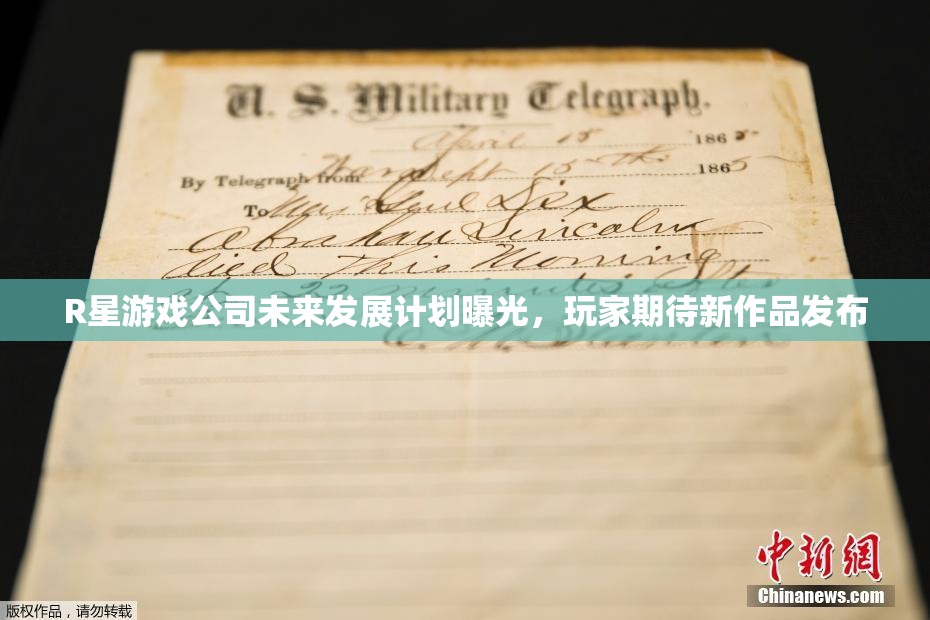 U. S. Military Telegraph.
April 15 1865
By Telegraph from War Dept 15th 1865
To Maj Genl Dix
Abraham Lincoln
died This Morning
22 minutes after
R星游戏公司未来发展计划曝光，玩家期待新作品发布
E. M. Stanton
中新网
Chinanews.com
版权作品，请勿转载